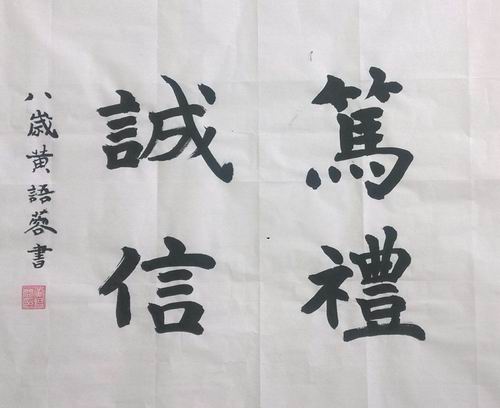 篤禮
誠信
八歲黄語蓉書